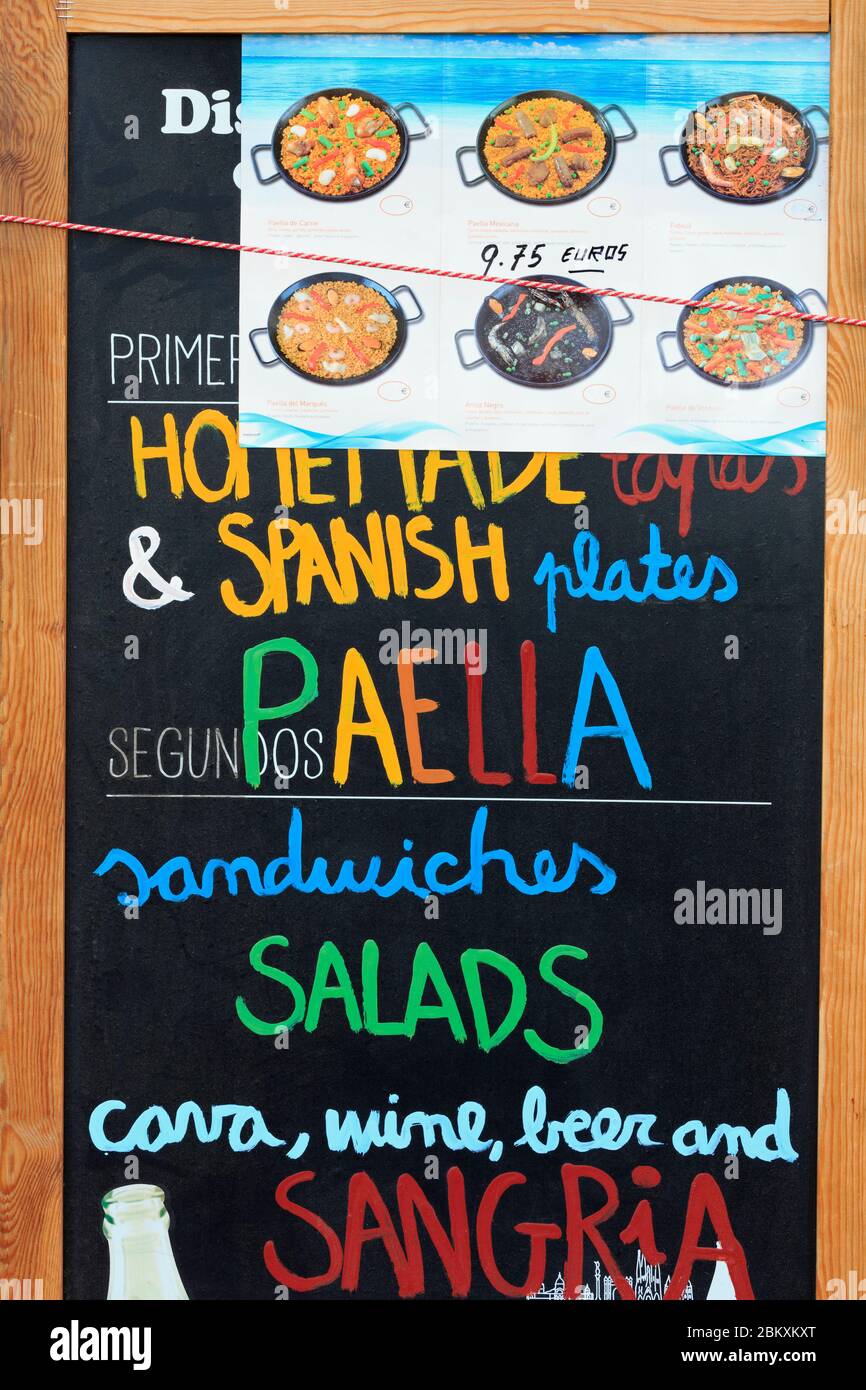 Dis
Paella de Carne
Paella Mexicana
Fideuá
9.75 EUROS
PRIMER
Paella del Marqués
Arroz Negro
Paella de Verduras
HOMEMADE tapas
& SPANISH plates
PAELLA
SEGUNDOS
sandwiches
SALADS
cava, wine, beer and
SANGRiA
alamy
Image ID: 2BKXKXT
www.alamy.com